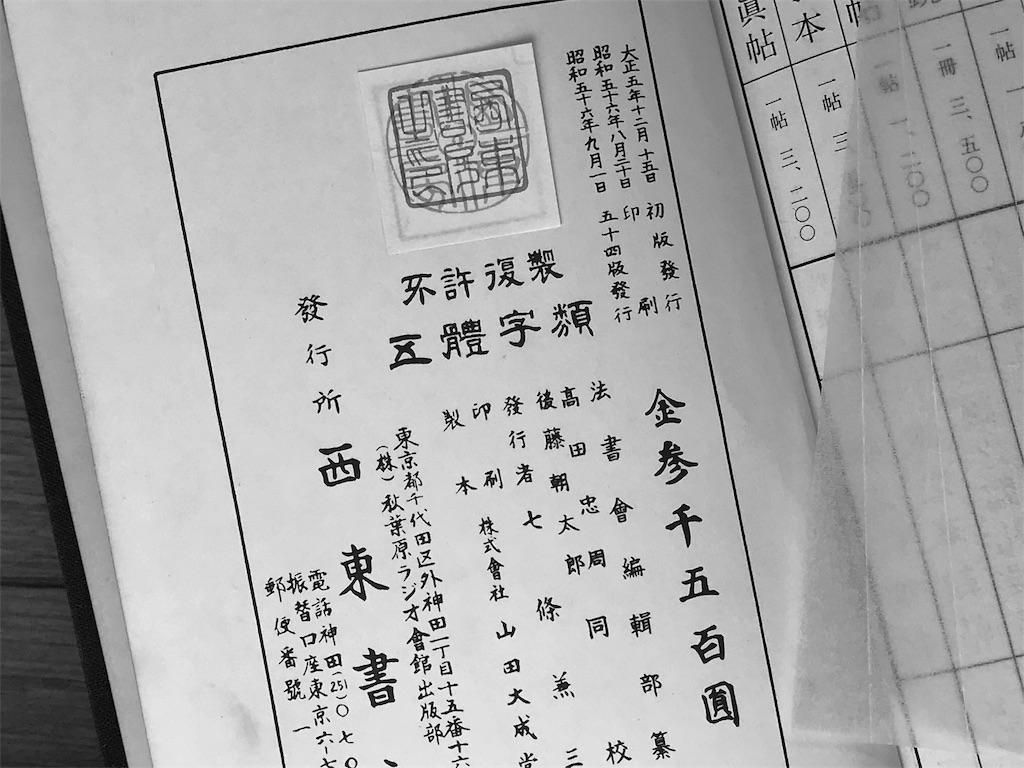 一冊 三、五〇〇
一帖 三
眞帖 一帖 三、二〇〇
大正五年十二月十五日 初版發行
昭和五十六年八月三十日 印刷
昭和五十六年九月一日 五十四版發行
不許復製
五體字類
金參千五百圓
法書會編輯部纂
高田忠周同校
後藤朝太郎
發行者 七條兼三
印刷
製本
株式會社 山田大成堂
東京都千代田区外神田一丁目十五番十六
(株)秋葉原ラジオ會館出版部
發行所 西東書
電話神田(251)〇七〇
振替口座東京六-七
郵便番號 一